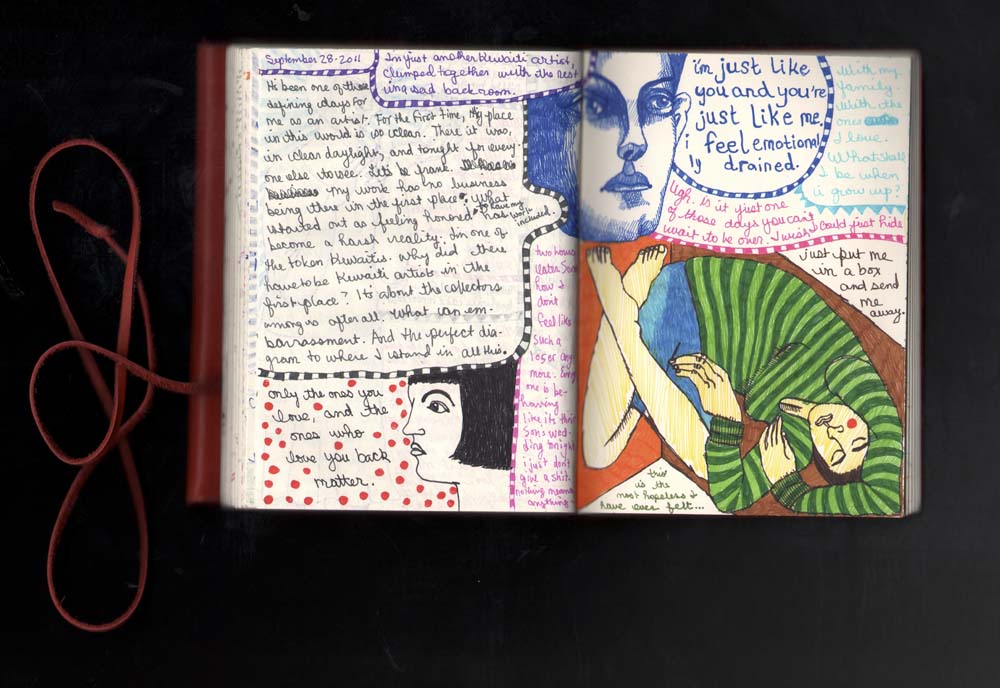 September 28-2011
I'm just another Kuwaiti artist,
clumped together with the rest
in a sad back room.
It's been one of those
defining days for
me as an artist. For the first time, my place
in this world is so clear. There it was,
in clear daylight, and tonight for every-
one else to see. Let's be frank.
my work has no business
being there in the first place. What
started out as feeling honored to have my work included.
has
become a harsh reality. I'm one of
the token Kuwaitis. Why did there
have to be Kuwaiti artists in the
first place? It's about the collectors
among us after all. What an em-
barrassment. And the perfect dia-
gram to where I stand in all this.
only the ones you
love, and the
ones who
love you back
matter.
two hours
later. Som
how I
don't
feel like
such a
loser any
more. Every
one is be-
having
like it's their
son's wed-
ding tonight
i just don't
give a shit.
nothing means
anything-
i'm just like
you and you're
just like me.
i feel emotional
ly drained.
With my
family.
With the
ones
I love.
What shall
I be when
i grow up?
Ugh. Is it just one
of those days you can't
wait to be over. I wish I could just hide
Just put me
in a box
and send
me
away.
this
is the
most hopeless I
have ever felt...